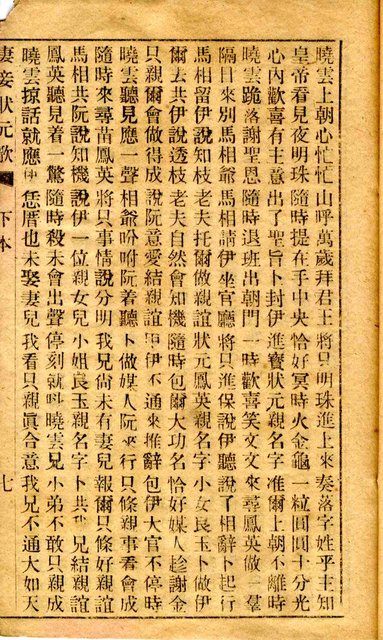 曉雲上朝心忙忙山呼萬歲拜君王將只明珠進上來奏落字姓乎主知
皇帝看見夜明珠隨時提在手中央恰好冥時火金龜一粒圓圓十分光
心內歡喜有主意出了聖旨卜封伊進寶狀元親名字准爾上朝不離時
曉雲跪落謝聖恩隨時退班出朝門一時歡喜笑文文來尋鳳英做一羣
隔日來別馬相爺馬相請伊坐官廳將只進保說伊聽說了相辭卜起行
馬相留伊說知枝老夫托爾做親誼狀元鳳英親名字小女良玉卜做伊
爾去共伊說透枝老夫自然會知機隨時包爾大功名恰好媒人趁謝金
只親爾會做得成說阮意愛結親誼甲伊不通來推辭包伊大官不停時
曉雲聽見應一聲相爺吩咐阮着聽卜做媒人阮平行只條親事看會成
隨時來尋苗鳳英將只事情說分明我兄尚未有妻兒報爾只條好親情
馬相共阮說知機說伊一位親女兒小姐良玉親名字卜共我兄結親誼
鳳英聽見着一驚隨時殺未會出聲停刻就叫曉雲兄小弟不敢只親成
曉雲掠話就應伊恁厝也未娶妻兒我看只親眞合意我兄不通大如天
妻妾狀元歌 下本 七